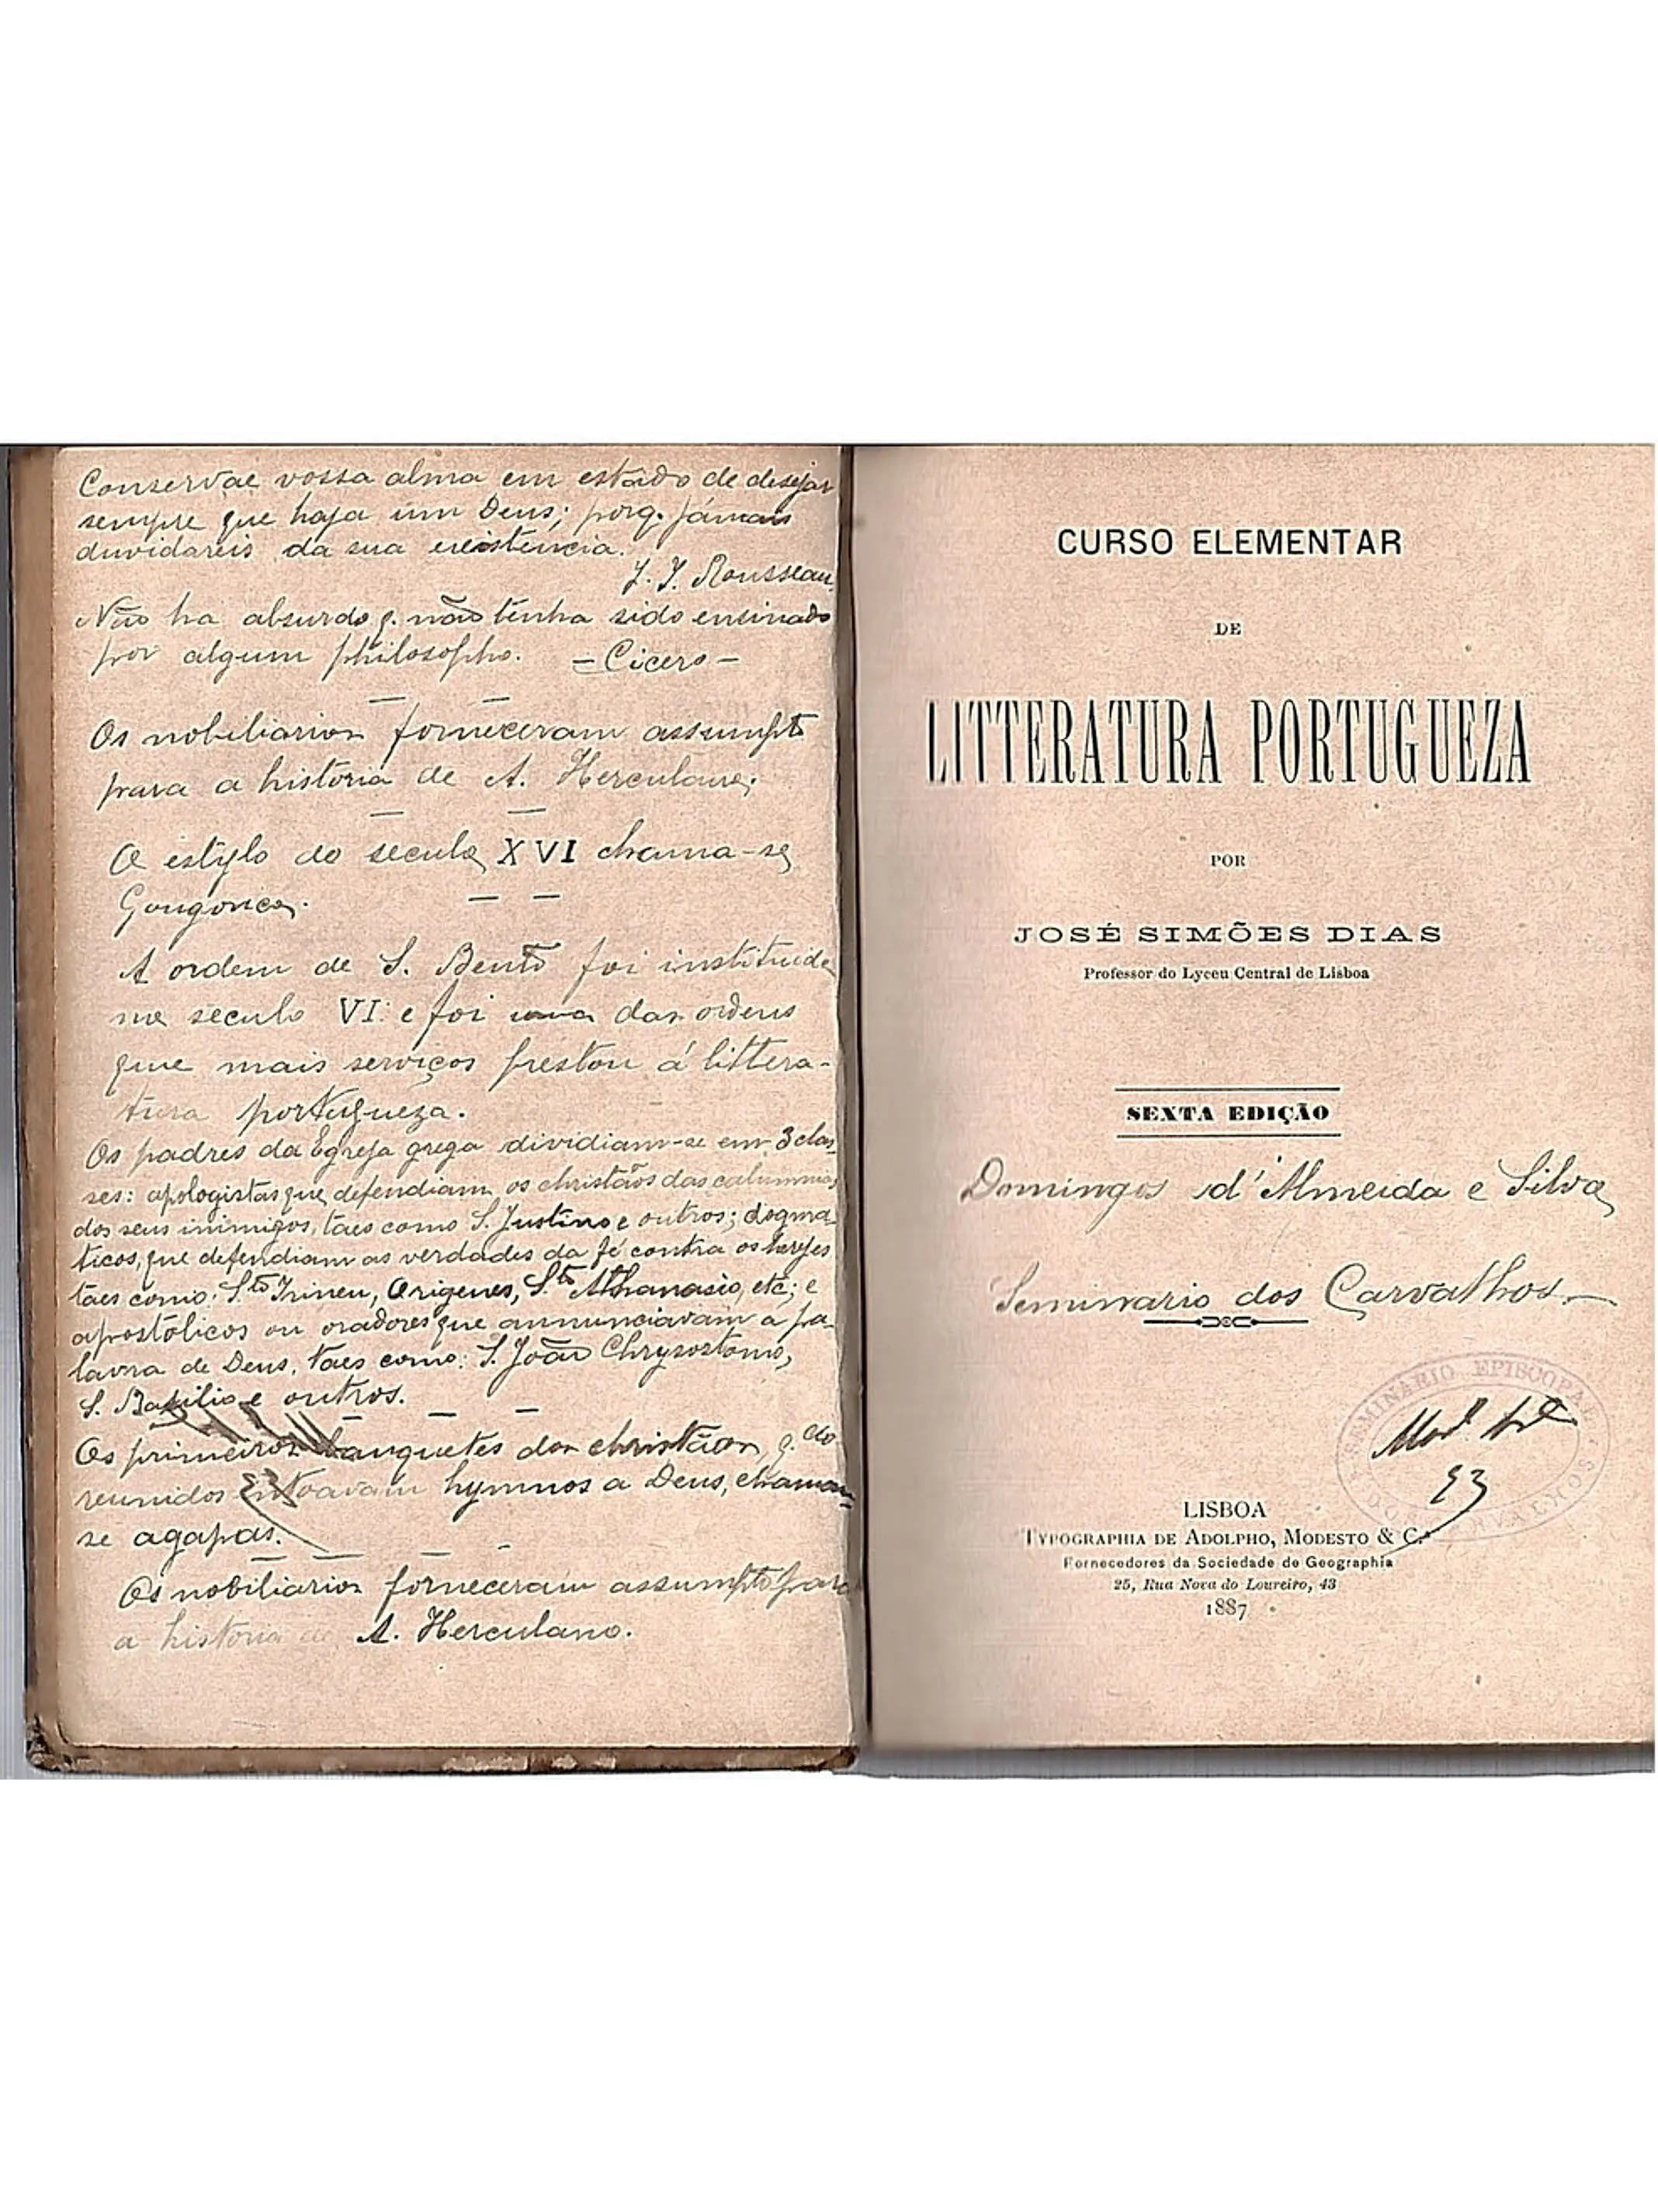 Conservae vossa alma em estado de desejar
sempre que haja um Deus; porq. jámais
duvidareis da sua existencia.
J. J. Rousseau
Não ha absurdo q. não tenha sido ensinado
por algum philosopho. = Cicero -
Os nobiliarios forneceram assumpto
para a história de A. Herculano;
O estylo do seculo XVI chama-se
Gongorico.
A ordem de S. Bento foi instituida
no seculo VI: e foi uma das ordens
que mais serviços prestou á littera-
tura portugueza.
Os padres da Egreja grega dividiam-se em 3 clas-
ses: apologistas que defendiam os christãos das calumnias
dos seus inimigos, taes como S. Justino e outros; dogma-
ticos, que defendiam as verdades da fé contra os herejes
táes como: S.to Irineu, Origenes, S.to Athanasio, etc; e
apostólicos ou oradores que annunciavam a pa-
lavra de Deus, taes como: S. João Chrysostomo,
S. Basilio e outros.
Os primeiros banquetes dos christãos, q.do
reunidos entoavam hymnos a Deus, chamam-
se agapas.
Os nobiliarios forneceram assumpto para
a historia de A. Herculano.
CURSO ELEMENTAR
DE
LITTERATURA PORTUGUEZA
POR
JOSÉ SIMÕES DIAS
Professor do Lyceu Central de Lisboa
SEXTA EDIÇÃO
Domingos d'Almeida e Silva
Seminario dos Carvalhos.
SEMINARIO EPISCOPAL
DOS CARVALHOS
LISBOA
TYPOGRAPHIA DE ADOLPHO, MODESTO & C.ª
Fornecedores da Sociedade de Geographia
25, Rua Nova do Loureiro, 43
1887